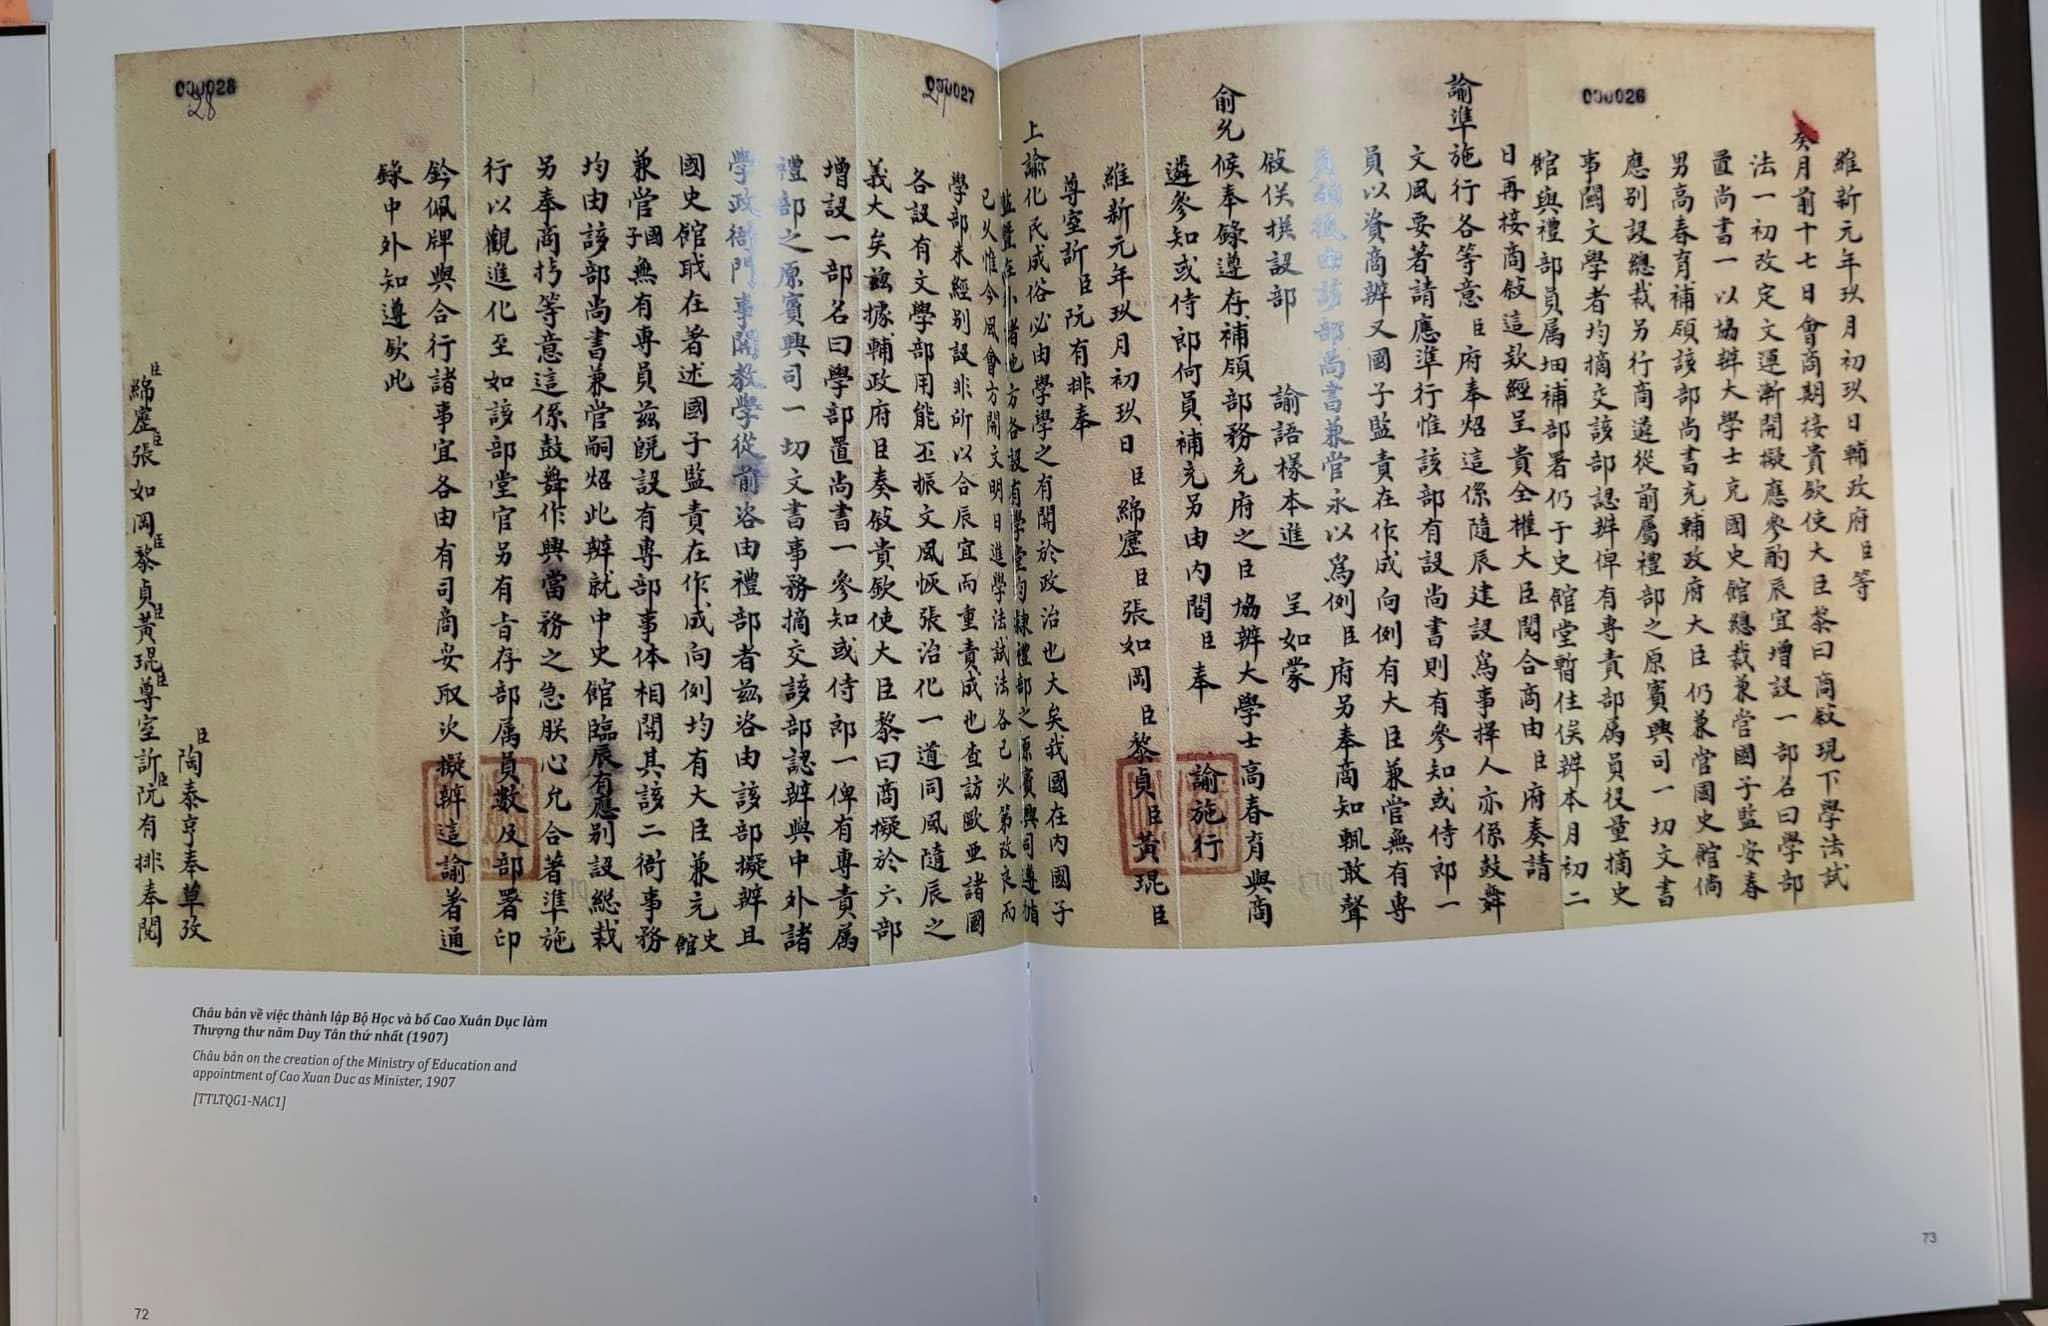 000026
維新元年玖月初玖日輔政府臣等
奏月前十七日會商期接貴欽使大臣黎曰商敍現下學法試
法一初改定文運漸開擬應參酌辰宜增設一部名曰學部
置尚書一以協辦大學士充國史館總裁兼管國子監安春
男高春育補領該部尚書充輔政府大臣仍兼管國史館倘
應别設總裁另行商遴從前屬禮部之原賓興司一切文書
事關文學者均摘交該部認辦俾有專責部属員役量摘史
館與禮部員属細補部署仍于史館堂暫住俟辦本月初二
日再接商敍這欵經呈貴全權大臣閱合商由臣府奏請
諭準施行各等意臣府奉炤這係隨辰建設爲事擇人亦係鼓舞
文風要著請應準行惟該部有設尚書則有參知或侍郎一
員以資商辦又國子監責在作成向例有大臣兼管無有專
員頒抵由該部尚書兼管永以爲例臣府另奉商知輒敢聲
敍俟撰設部諭語樣本進呈如蒙
俞允候奉錄遵存補領部務充府之臣協辦大學士高春育與商
遴參知或侍郎何員補充另由内閣臣奉諭施行
維新元年玖月初玖日臣綿寔臣張如岡臣黎貞臣黃琨臣
尊室訢臣阮有排奉
000027
27
上諭化民成俗必由學學之有關於政治也大矣我國在内國子
監暨在外諸地方各設有學堂均隸禮部之原賓興司遵循
已久惟今風會方開文明日進學法試法各已次第改良而
學部未經别設非所以合辰宜而重責成也查訪歐亜諸國
各設有文學部用能丕振文風恢張治化一道同風隨辰之
義大矣茲據輔政府臣奏敍貴欽使大臣黎曰商擬於六部
增設一部名曰學部置尚書一參知或侍郎一俾有專責属
禮部之原賓興司一切文書事務摘交該部認辦與中外諸
學政衙門事關教學從前咨由禮部者茲咨由該部擬辦且
國史館職在著述國子監責在作成向例均有大臣兼充史館
兼管國子無有專員茲旣設有專部事体相關其該二衙事務
均由該部尚書兼管嗣炤此辦就中史館臨辰有應别設総裁
另奉商抅等意這係鼓舞作興當務之急朕心允合著準施
行以觀進化至如該部堂官另有㫖存部属員數及部署印
鈐佩牌與合行諸事宜各由有司商妥取次擬辦這諭著通
錄中外知遵欽此
000028
28
臣陶泰亨奉草攷
臣綿寔臣張如岡臣黎貞臣黃琨臣尊室訢臣阮有排奉閱
Châu bản về việc thành lập Bộ Học và bổ Cao Xuân Dục làm
Thượng thư năm Duy Tân thứ nhất (1907)
Châu bản on the creation of the Ministry of Education and
appointment of Cao Xuan Duc as Minister, 1907
[TTLTQG1-NAC1]
72
73